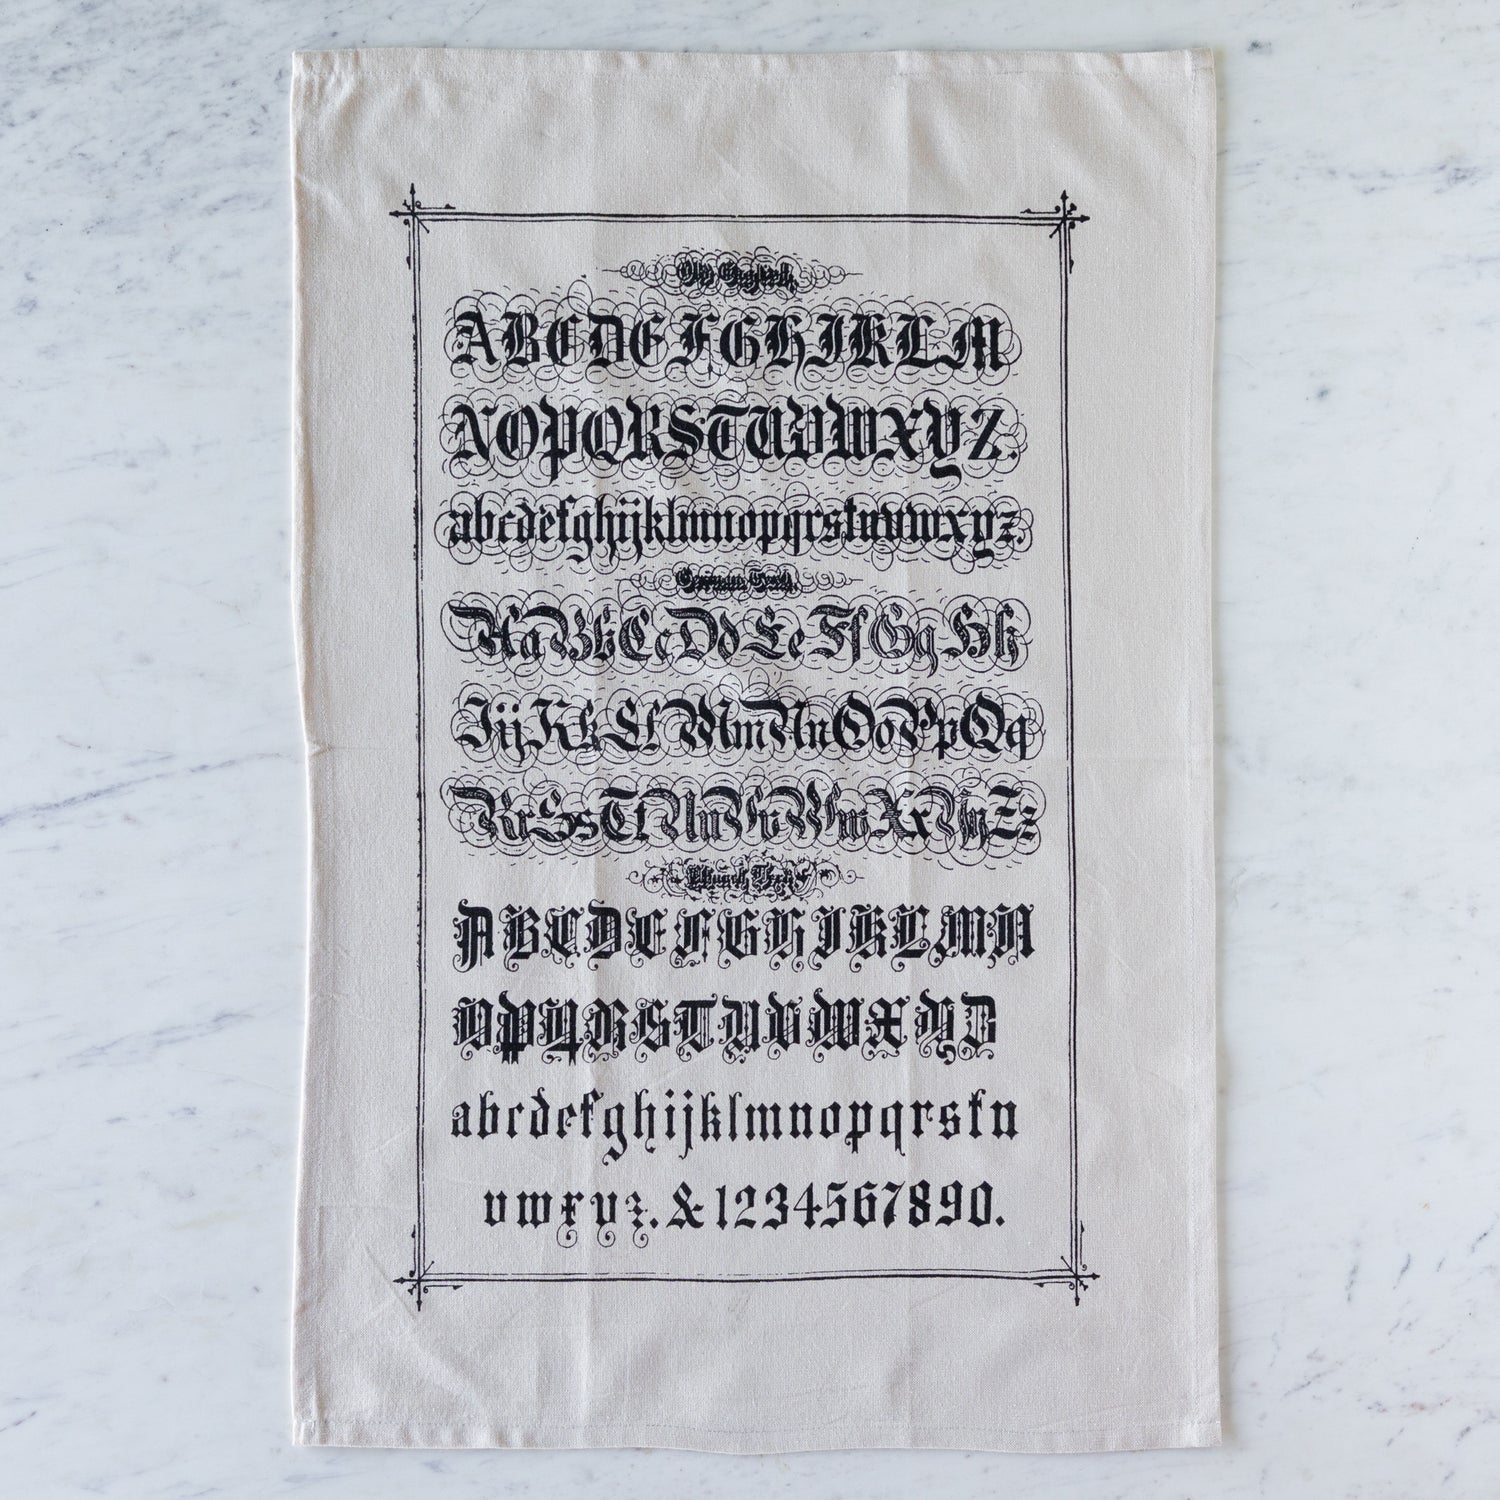 Old English.
A B C D E F G H I K L M
N O P Q R S T U V W X Y Z.
a b c d e f g h i j k l m n o p q r s t u v w x y z.
German Text.
Aa Bb Cc Dd Ee Ff Gg Hh
I i j Kk Ll Mm Nn Oo Pp Qq
Rr Ss Tt Uu Vv Ww Xx Yy Zz
Church Text
A B C D E F G H I K L M N
O P Q R S T U V W X Y Z
a b c d e f g h i j k l m n o p q r s t u
v w x y z. & 1 2 3 4 5 6 7 8 9 0.